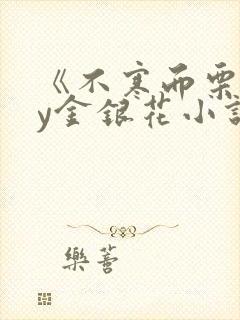 《不寒而栗
y金银花小説
樂薈